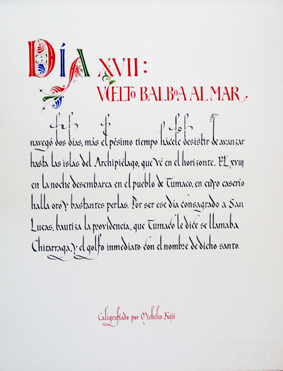 DÍA XVII:
VUELTO BALBOA AL MAR
navegó dos días, más el pésimo tiempo hácele desistir de avanzar
hasta las islas del Archipiélago, que vé en el horizonte. EL XVIII
en la noche desembarca en el pueblo de Tumaco, en cuyo caserío
halla oro y bastantes perlas. Por ser ese día consagrado a San
Lucas, bautiza la providencia, que Tumaco le dice se llamaba
Chitarraga, y el golfo inmediato con el nombre de dicho santo.
Caligrafiado por Michiko Fujii